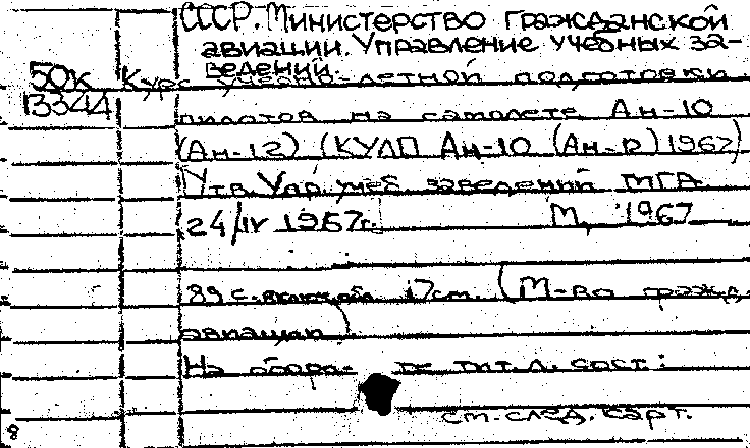 СССР. Министерство гражданской
авиации. Управление учебных за-
ведений.
50к Курс учебно-летной подготовки
13344 пилотов на самолете Ан-10
(Ан-12) (КУЛП Ан-10 (Ан-12) 1967)
Утв. Упр. учеб. заведений МГА
24/IV 1967г. М., 1967
89 с. включ. обл. 17см. (М-во гражд.
авиации)
На оборо- те тит. л. сост:
см. след. карт.
8